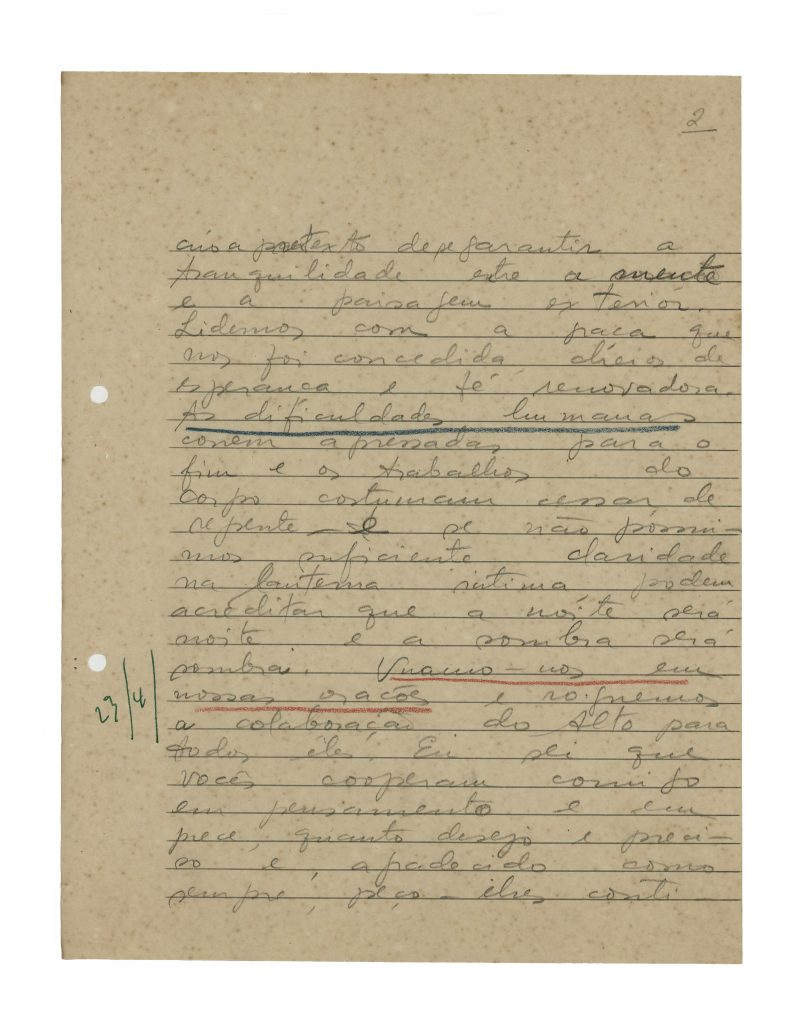 2
a pretexto de garantir a
tranquilidade entre a mente
e a paisagem exterior.
Lidemos com a que
nos foi concedida, cheios de
esperança e fé renovadora.
As dificuldades humanas
correm apressadas para o
fim e os trabalhos do
corpo costumam cessar de
repente e se não possuí-
mos suficiente claridade
na lanterna intima podem
acreditar que a noite será
noite e a sombra será
sombra. Unamo-nos em
nossas orações e roguemos
23/4/
a colaboração do Alto para
todos êles. Eu sei que
vocês cooperam comigo
em pensamento e em
prece, quanto desejo e preci-
so e, agradecido como
sempre, peço-lhes conti-